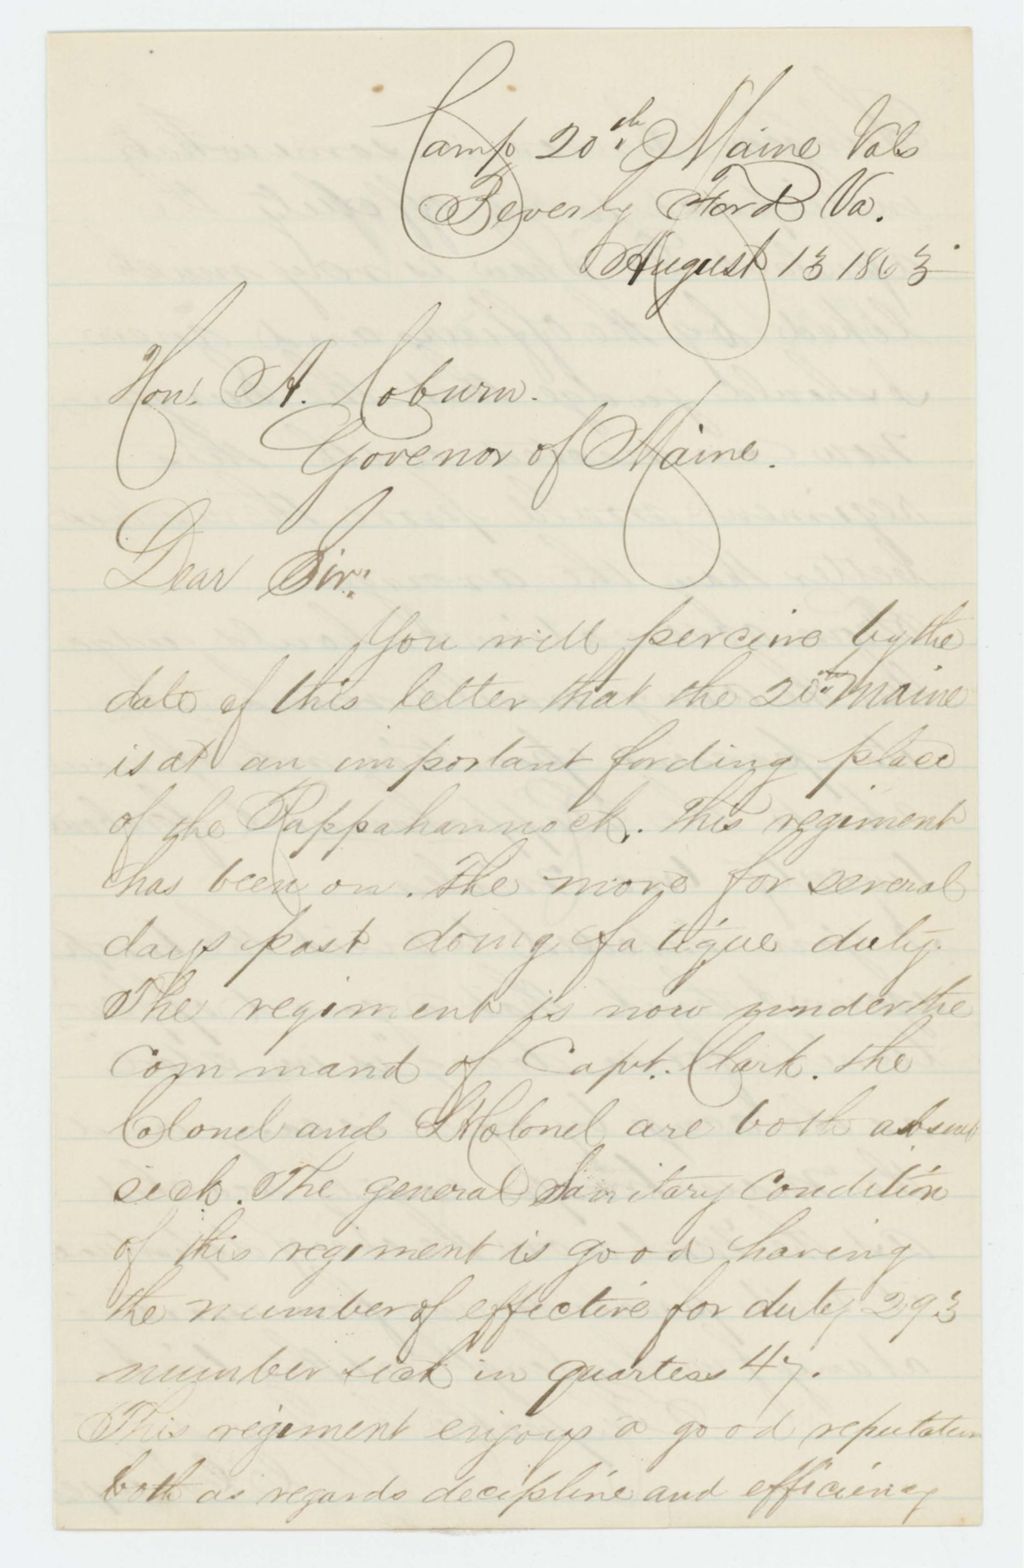 Camp 20th Maine Vols
Beverly Ford Va.
August 13 1863
Hon. A. Coburn.
Govenor of Maine.
Dear Sir:
You will percieve by the
date of this letter that the 20th Maine
is at an important fording place
of the Rappahannock. This regiment
has been on. The move for several
days past doing fatigue duty.
The regiment is now under the
command of Capt. Clark. The
Colonel and Lt Colonel are both absent
sick. The general Sanitary Condition
of this regiment is good having
the number of effective for duty 293
number sick in quarters 47.
This regiment enjoys a good reputation
both as regards decipline and efficiency